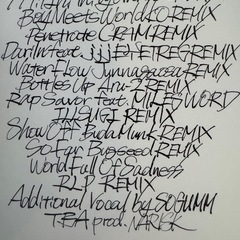 Boy Meets World EO REMIX
Penetrate CRAM REMIX
Darlin feat. jjj ETREG REMIX
Water Flow Junnagaosa REMIX
Bottles Up Aru-2 REMIX
Rap Savor feat. MILES WORD
ILLSUGI REMIX
Show Off BudaMunk REMIX
So Far Bugseed REMIX
World Full Of Sadness
R.I.P. REMIX
Additional Vocal by SOGUMM
TBA prod. NARISK